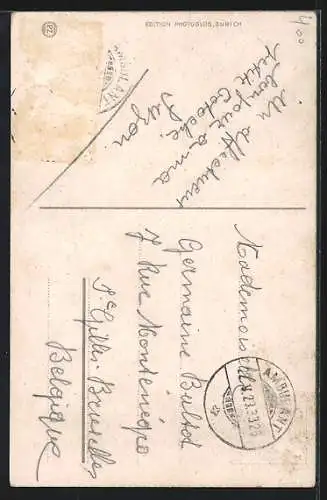 EDITION PHOTOGLOB, ZÜRICH
PZ
4.00
Un affectueux
bonjour à ma
petite Cotoche
Suzon
AMBULANT
Mademoiselle
Germaine Bultot
7 Rue Monténégro
St Gilles Bruxelles
Belgique
AMBULANT
23.3.23